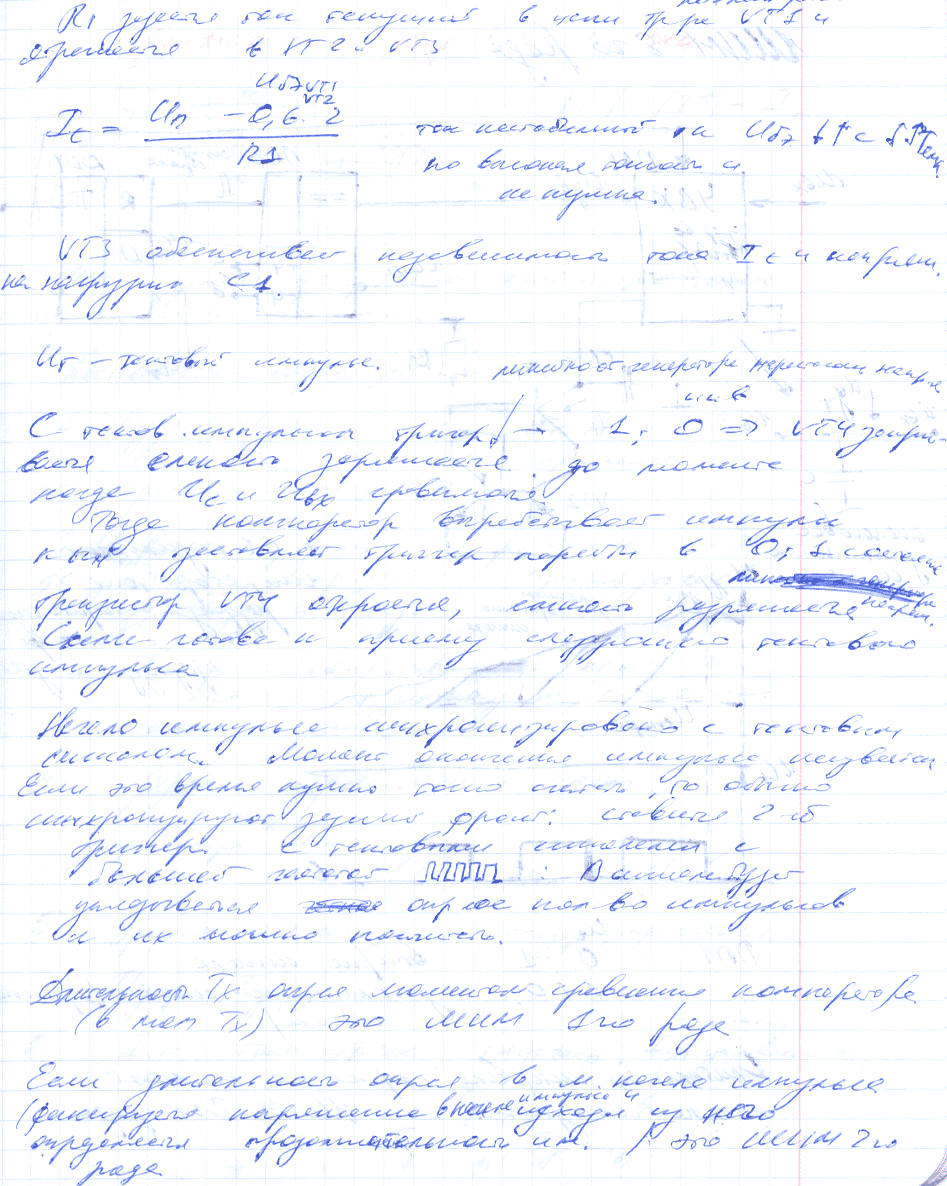 R1 задается ток текущий в цепи тр-ра VT1 и
отражается в VT2 и VT3
Uбэ VT1
VT2
It = Uп - 0,6 · 2 / R1
ток нестабильный и Uбэ ↓↑ с ↓↑ Темп.
но высокая точность и
не нужна.
VT3 обеспечивает независимость тока It и напряж.
на нагрузки C1.
Uт – тактовый импульс.
линейность генератора нарастания напря
С тактов. импульсом триггер → 1, 0 ⇒ VT4 закры-
вается емкость заряжается до момента
когда Uc и Uвх сравняются
Тогда компаратор вырабатывает импульс
к-ый заставляет триггер перейти в 0, 1 состояние
транзистор VT4 откроется, емкость разряжается
Схема готова к приему следующего тактового
импульса
Начало импульса синхронизировано с тактовым
сигналом. Момент окончания импульса неизвестен
Если это время нужно точно считать, то обычно
синхронизируют задний фронт: ставится 2-ой
триггер с тактовыми сигналами с
большей частотой : В сигнале будет
укладываться опр-ое кол-во импульсов
и их можно посчитать.
Длительность Tx опр-ся моментом сравнения компаратора
(в мом Tx) это ШИМ 1го рода
Если длительность опр-ся в м. начала импульса
(фиксируется напряжение в начале импульса и исходя из него
определяется продолжительность им. ) это ШИМ 2го
рода